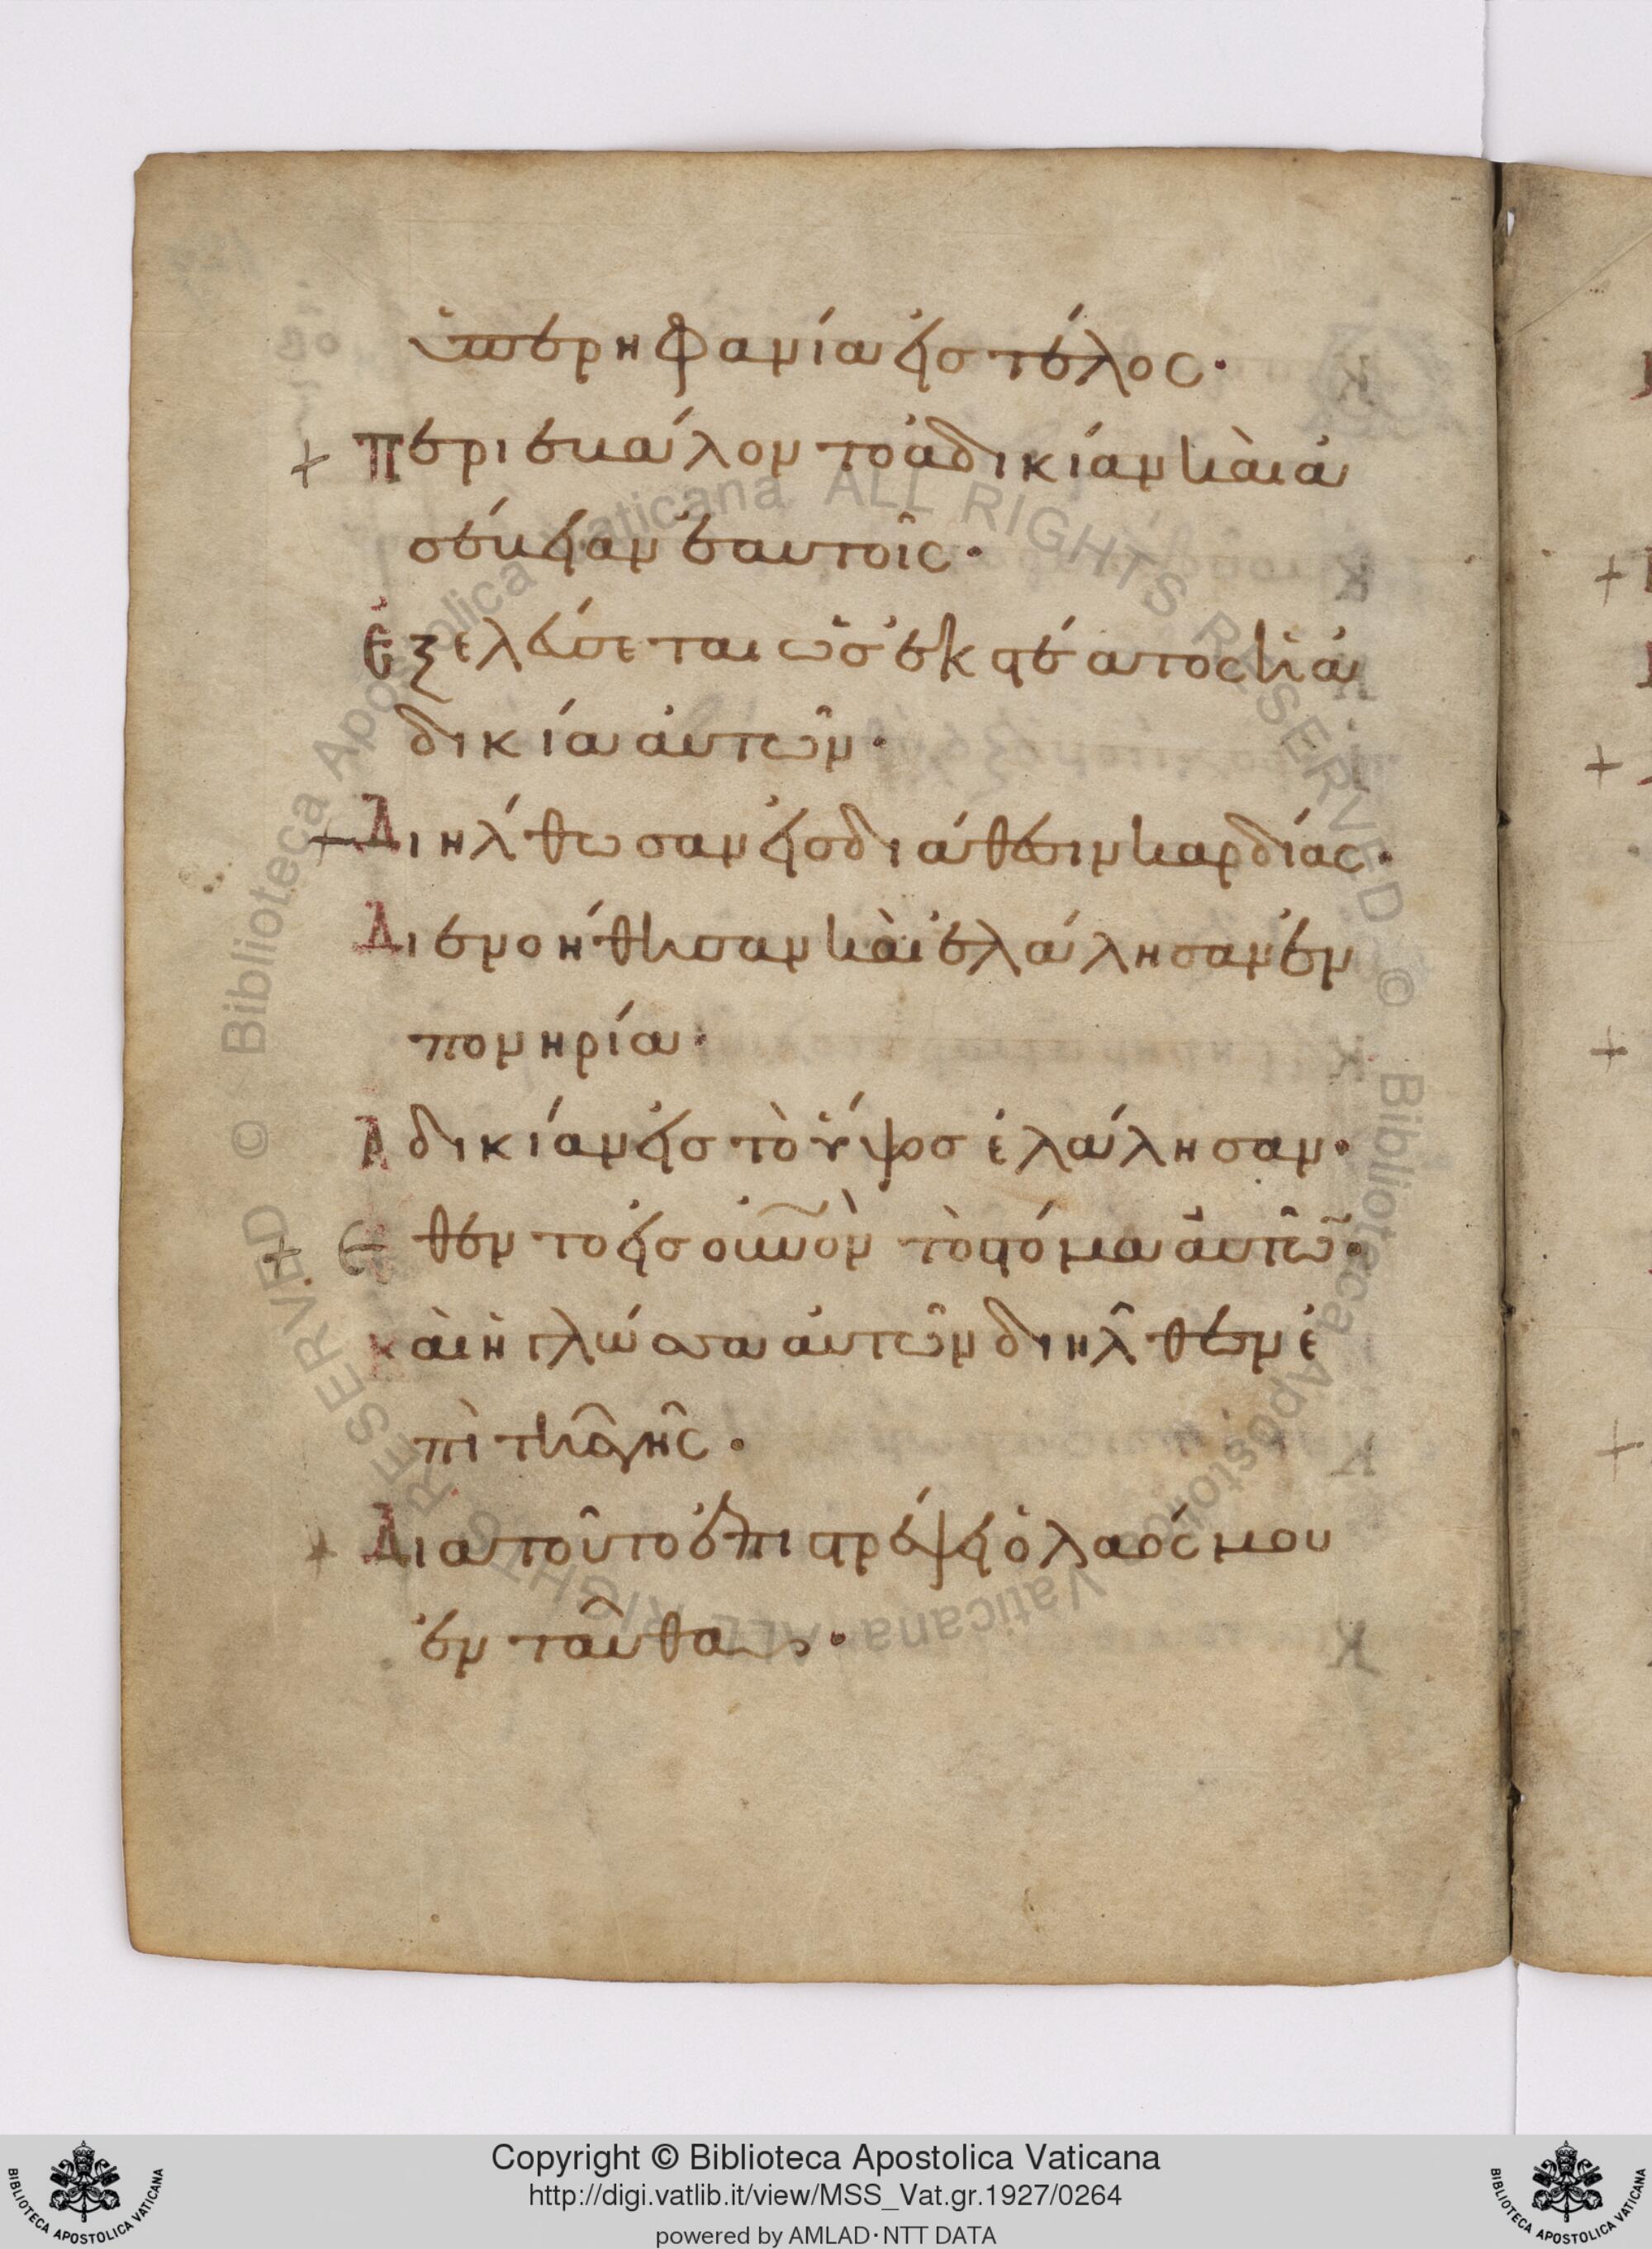 ὑπερηφανία εἰς τέλος·
+ Περιεκάλοντο ἀδικίαν καὶ ἀ
σέκειαν ἑαυτοῖς·
Ἐξελεύσεται ὡς ἐκ στέατος ἡ ἀ
δικία αὐτῶν·
+ Διήλθωσαν εἰς διάθεσιν καρδίας·
Διενοήθησαν καὶ ἐλάλησαν ἐν
πονηρία·
Ἀδικίαν εἰς τὸ ὕψος ἐλάλησαν·
+ Ἔθεντο εἰς οὐνὸν τὸ στόμα αὐτῶ·
καὶ ἡ γλώσσα αὐτῶν διῆλθεν ἐ
πὶ τῆς γῆς·
+ Διατοῦτο ἐπιστρέψει ὁ λαός μου
ἐνταῦθα·
© Biblioteca Apostolica Vaticana ALL RIGHTS RESERVED © Biblioteca Apostolica Vaticana ALL RIGHTS RESERVED
Copyright © Biblioteca Apostolica Vaticana
http://digi.vatlib.it/view/MSS_Vat.gr.1927/0264
powered by AMLAD·NTT DATA
BIBLIOTECA APOSTOLICA VATICANA
BIBLIOTECA APOSTOLICA VATICANA